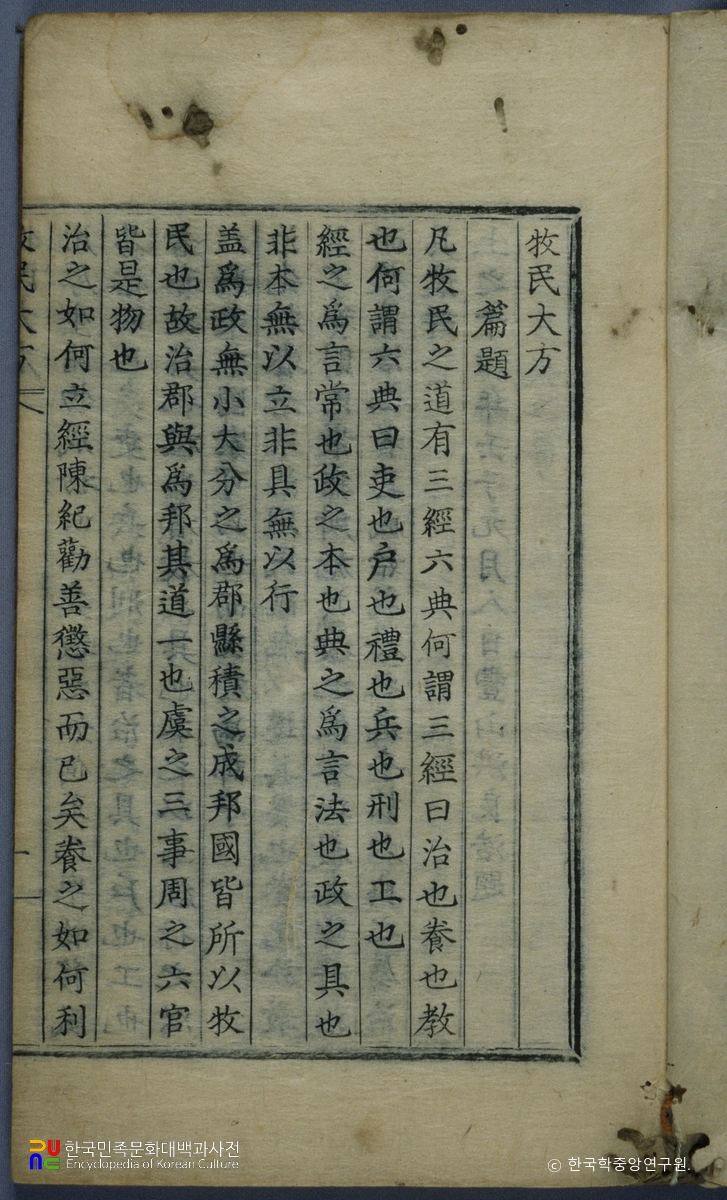 牧民大方
篇題
凡牧民之道有三經六典何謂三經曰治也養也教
也何謂六典曰吏也戶也禮也兵也刑也工也
經之爲言常也政之本也典之爲言法也政之具也
非本無以立非具無以行
盖爲政無小大分之爲郡縣積之成邦國皆所以牧
民也故治郡與爲邦其道一也虞之三事周之六官
皆是物也
治之如何立經陳紀勸善懲惡而已矣養之如何利
牧民大方
한국민족문화대백과사전
Encyclopedia of Korean Culture
ⓒ 한국학중앙연구원.